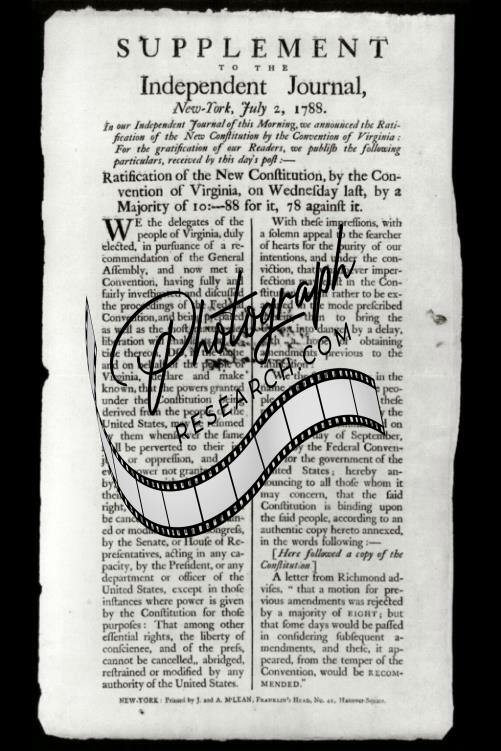 SUPPLEMENT
TO THE
Independent Journal,
New-York, July 2, 1788.
In our Independent Journal of this Morning, we announced the Rati-
fication of the New Constitution by the Convention of Virginia:
For the gratification of our Readers, we publiſh the following
particulars, received by this day's poſt:—
Ratification of the New Conſtitution, by the Con-
vention of Virginia, on Wedneſday laſt, by a
Majority of 10:—88 for it, 78 againſt it.
WE the delegates of the
people of Virginia, duly
elected, in purſuance of a re-
commendation of the General
Aſſembly, and now met in
Convention, having fully and
fairly inveſtigated and diſcuſſed
the proceedings of the Federal
Convention, and being
as well as the
liberation
tice thereon, Do, in the name
and on behalf of the people of
Virginia, declare and make
known, that the powers granted
under the Conſtitution being
derived from the people of the
United States, may be reſumed
by them whenſoever the ſame
be perverted to their
or oppreſſion, and
power not granted
by
their
right,
be cancelled
ed or modified
by the Senate, or Houſe of Re-
preſentatives, acting in any ca-
pacity, by the Preſident, or any
department or officer of the
United States, except in thoſe
inſtances where power is given
by the Conſtitution for thoſe
purpoſes: That among other
eſſential rights, the liberty of
conſcience, and of the preſs,
cannot be cancelled,, abridged,
reſtrained or modified by any
authority of the United States.
With theſe impreſſions, with
a ſolemn appeal to the ſearcher
of hearts for the purity of our
intentions, and under the con-
viction, that imper-
fections in the Con-
rather to be ex-
mode preſcribed
to bring the
into danger by a delay,
obtaining
amendments previous to the
in the
the
theſe
on
day of September,
by the Federal Conven-
for the government of the
United States; hereby an-
nouncing to all thoſe whom it
may concern, that the ſaid
Conſtitution is binding upon
the ſaid people, according to an
authentic copy hereto annexed,
in the words following:—
[Here followed a copy of the
Conſtitution]
A letter from Richmond ad-
viſes, "that a motion for pre-
vious amendments was rejected
by a majority of EIGHT; but
that ſome days would be paſſed
in conſidering ſubſequent a-
mendments, and theſe, it ap-
peared, from the temper of the
Convention, would be RECOM-
MENDED."
NEW-YORK: Printed by J. and A. M'LEAN, FRANKLIN'S HEAD, No. 41, Hanover-Square.
Photograph
RESEARCH.COM